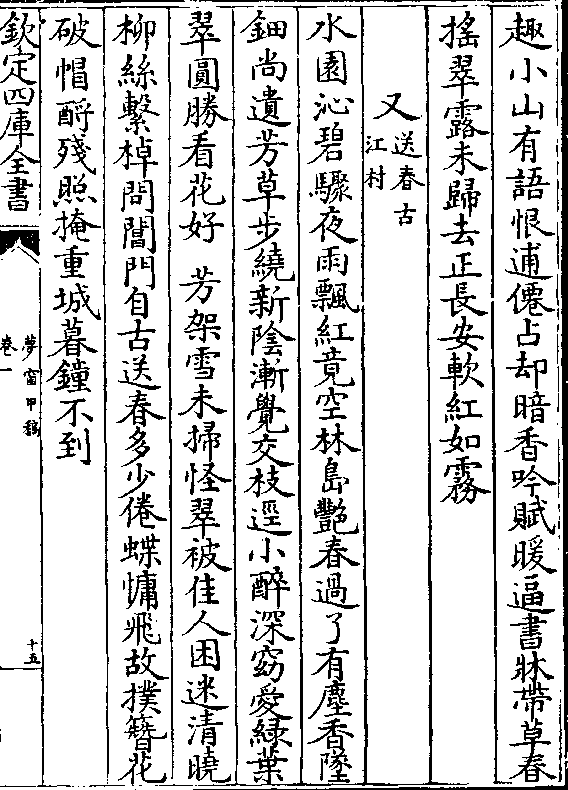 趣小山有語恨逋僊占却暗香吟賦暖逼書牀帶草春
搖翠露未歸去正長安軟紅如霧
又送春古江村
水園沁碧驟夜雨飄紅竟空林島艷春過了有塵香墜
鈿尚遺芳草步繞新陰漸覺交枝逕小醉深窈愛綠葉
翠圓勝看花好　芳架雪未掃怪翠被佳人困迷清曉
柳絲繫棹問閶門自古送春多少倦蝶慵飛故撲簪花
破帽酹殘照掩重城暮鐘不到
欽定四庫全書
夢窗甲稿
卷一
十五